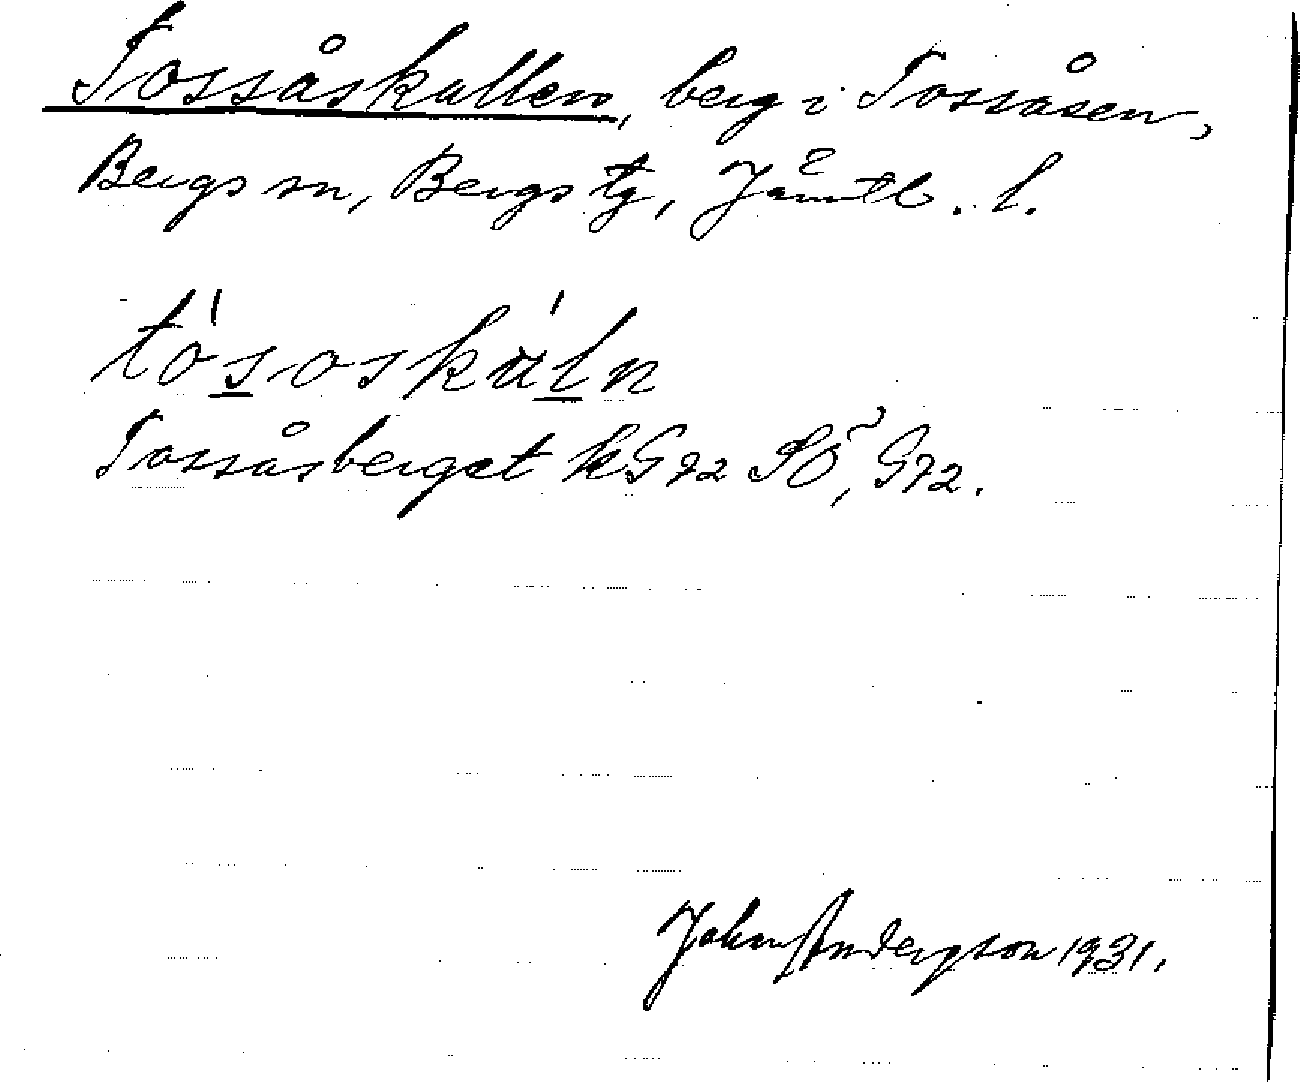 Tossåskallen, berg i Tossåsen,
Bergs sn, Bergs tg, Jämtl. l.
tósoskáln
Tossåsberget kG72 SÖ, G72.
John Anderzson 1931.